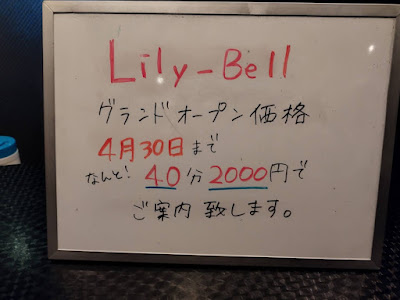 Lily-Bell
グランドオープン価格
4月30日まで
なんと！40分2000円で
ご案内致します。